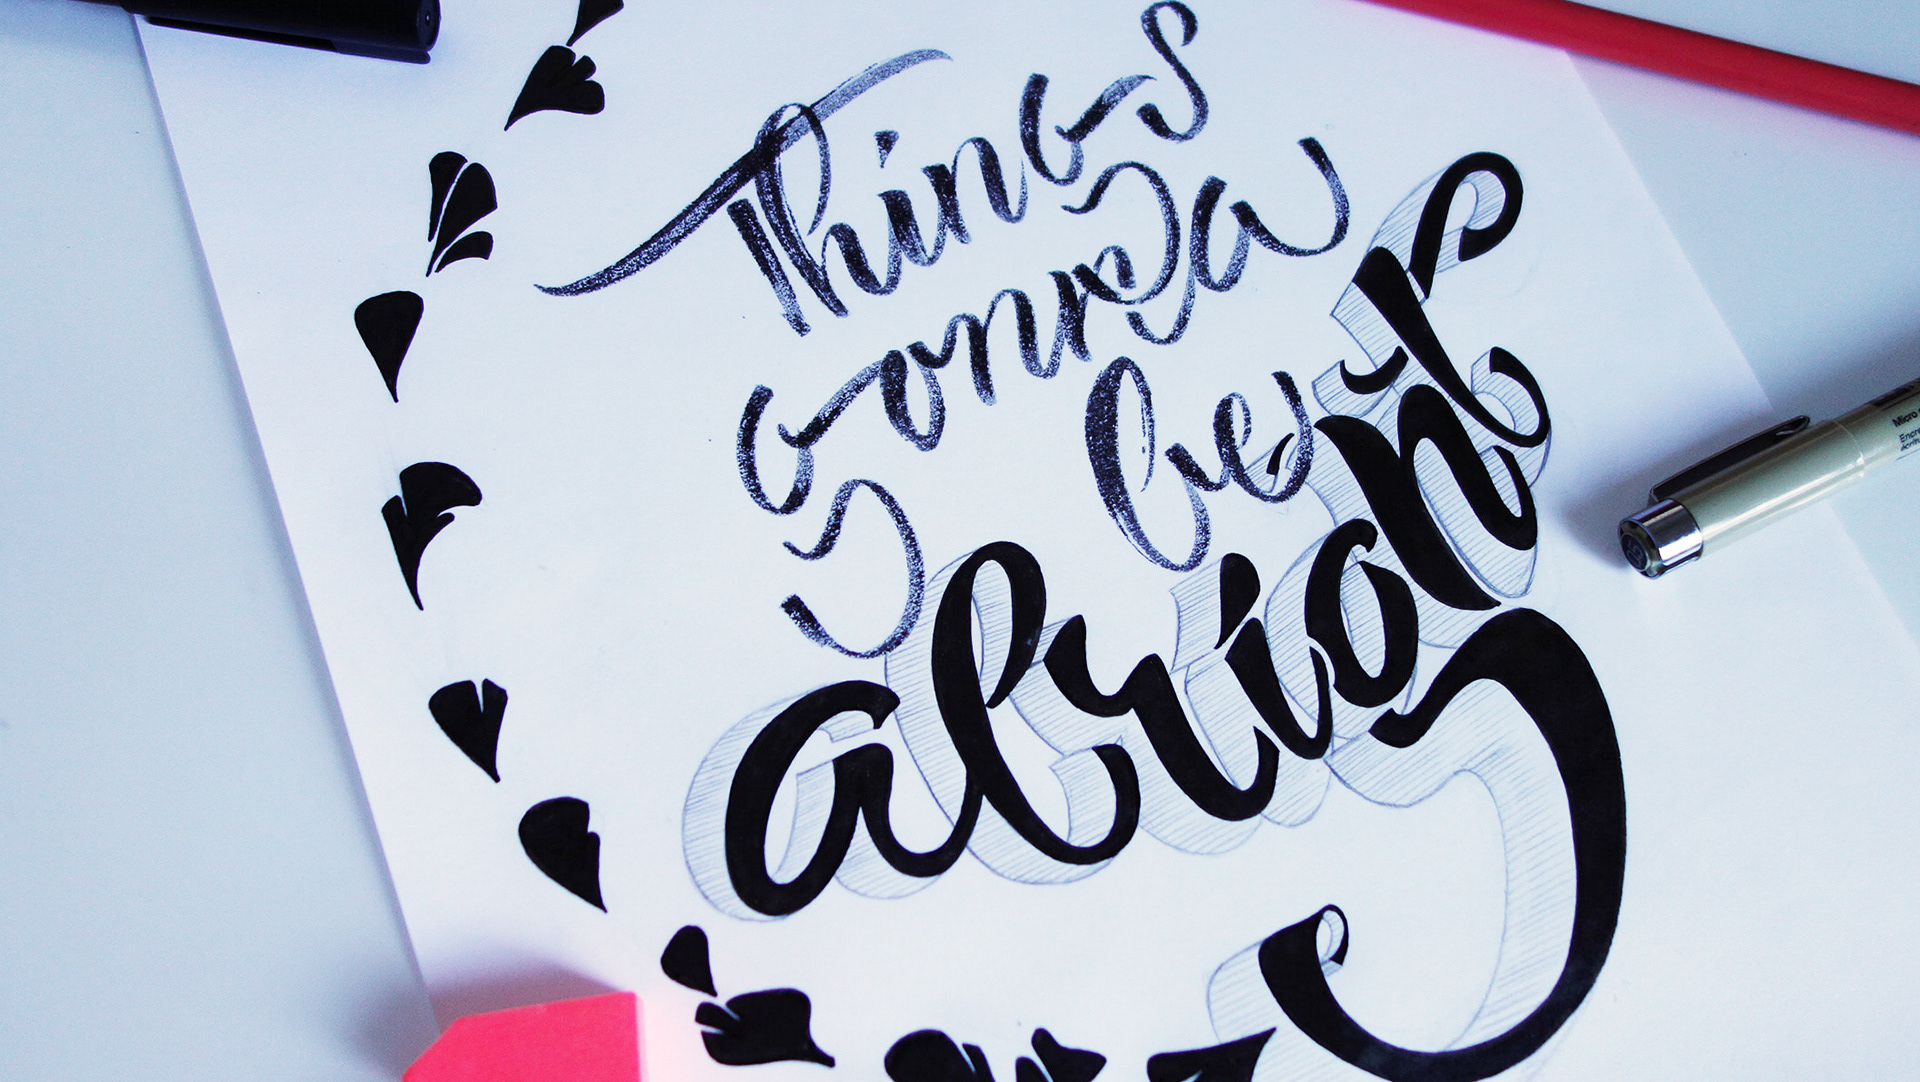 Things
gonna
be
alright
Micro